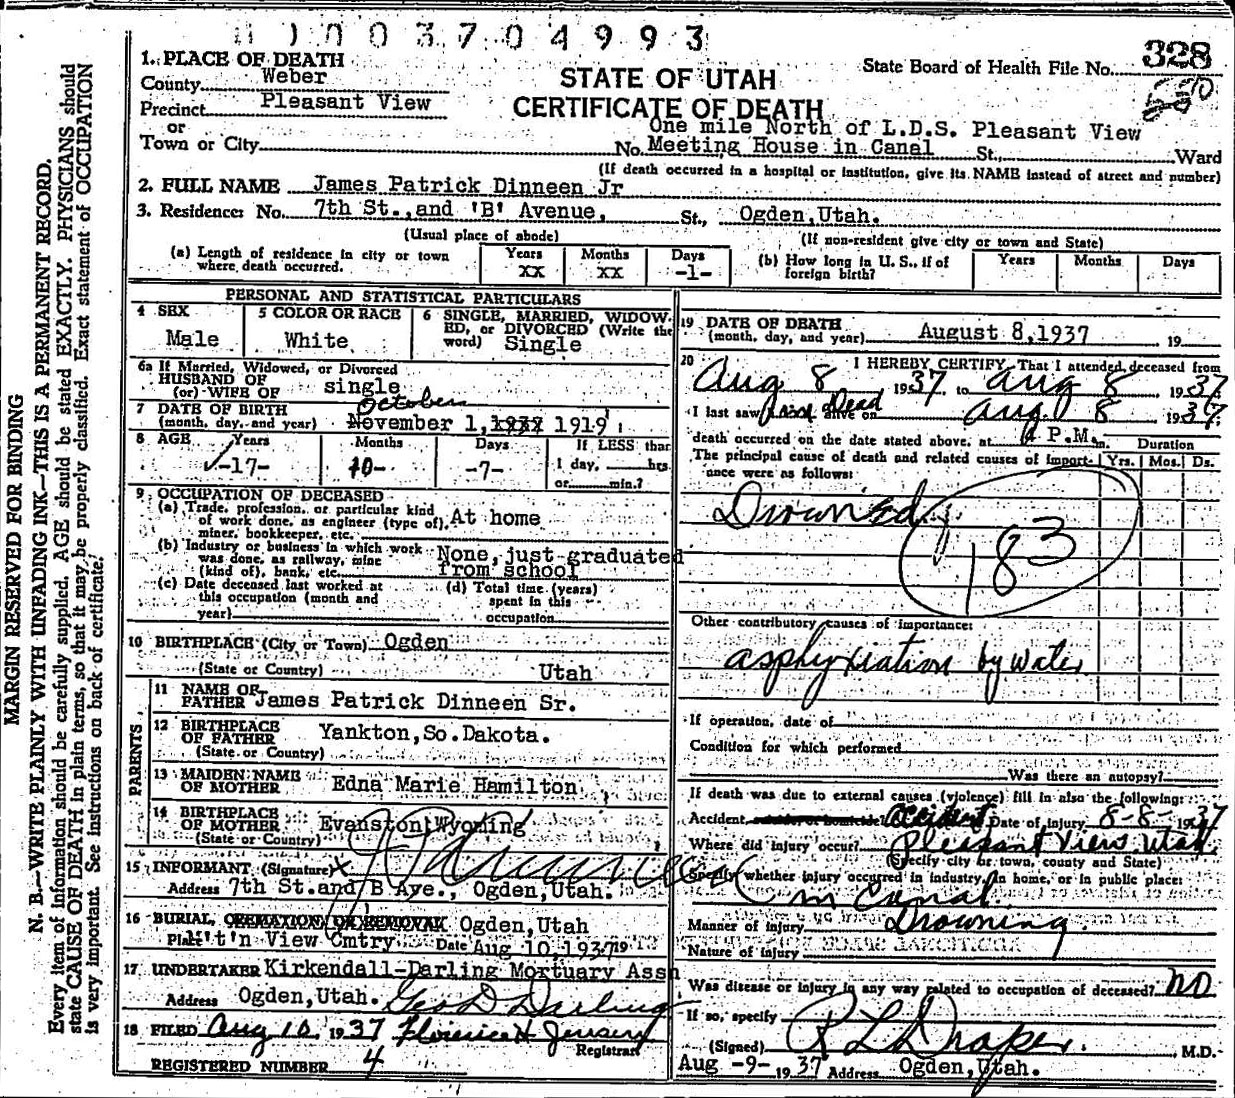 003704993
328
1. PLACE OF DEATH
County Weber
Precinct Pleasant View
or
Town or City
STATE OF UTAH
CERTIFICATE OF DEATH
State Board of Health File No.
One mile North of L.D.S. Pleasant View
No. Meeting House in Canal St., Ward
(If death occurred in a hospital or institution, give its NAME instead of street and number)
2. FULL NAME James Patrick Dinneen Jr
3. Residence: No. 7th St.,and 'B' Avenue. St., Ogden,Utah.
(Usual place of abode) (If non-resident give city or town and State)
(a) Length of residence in city or town where death occurred. Years XX Months XX Days -1-
(b) How long in U. S., if of foreign birth? Years Months Days
PERSONAL AND STATISTICAL PARTICULARS
4 SEX Male
5 COLOR OR RACE White
6 SINGLE, MARRIED, WIDOWED, or DIVORCED (Write the word) Single
6a If Married, Widowed, or Divorced
HUSBAND OF
(or) WIFE OF single
October
7 DATE OF BIRTH
(month, day, and year) November 1, 1919
8 AGE Years -17- Months 10- Days -7- If LESS than
1 day, hrs.
or min.?
9 OCCUPATION OF DECEASED
(a) Trade, profession, or particular kind
of work done, as engineer (type of), At home
miner, bookkeeper, etc.
(b) Industry or business in which work None, just graduated
was done, as railway, mine
(kind of), bank, etc. from school
(c) Date deceased last worked at
this occupation (month and
year)
(d) Total time (years)
spent in this
occupation
10 BIRTHPLACE (City or Town) Ogden
(State or Country) Utah
PARENTS
11 NAME OF
FATHER James Patrick Dinneen Sr.
12 BIRTHPLACE
OF FATHER Yankton,So.Dakota.
(State or Country)
13 MAIDEN NAME
OF MOTHER Edna Marie Hamilton
14 BIRTHPLACE
OF MOTHER Evanston,Wyoming
(State or Country)
15 INFORMANT (Signature) X
Address 7th St.and B Ave., Ogden,Utah.
16 BURIAL, CREMATION, OR REMOVAL Ogden,Utah
Place M't'n View Cmtry Date Aug 10,1937 19
17 UNDERTAKER Kirkendall-Darling Mortuary Assn
Address Ogden,Utah. Geo D Darling
18 FILED Aug 10, 1937 Florence H Jensen
Registrar
REGISTERED NUMBER 4
19 DATE OF DEATH
(month, day, and year) August 8,1937 19
20 I HEREBY CERTIFY, That I attended deceased from
Aug 8 1937 to Aug 8 1937
I last saw Dead alive on Aug. 8 1937
death occurred on the date stated above, at P.M.
The principal cause of death and related causes of importance were as follows:
Duration
Yrs. Mos. Ds.
Drowned
183
Other contributory causes of importance:
asphyxiation by water
If operation, date of
Condition for which performed
Was there an autopsy?
If death was due to external causes (violence) fill in also the following:
Accident, suicide or homicide Accident Date of injury 8-8- 1937
Where did injury occur? Pleasant View, Utah.
(Specify city or town, county and State)
Specify whether injury occurred in industry, in home, or in public place:
in Canal.
Manner of injury Drowning.
Nature of injury
Was disease or injury in any way related to occupation of deceased? no
If so, specify
(Signed) R L Draper. , M.D.
Aug -9- 1937 Address Ogden,Utah.
MARGIN RESERVED FOR BINDING
N. B.—WRITE PLAINLY WITH UNFADING INK—THIS IS A PERMANENT RECORD.
Every item of information should be carefully supplied. AGE should be stated EXACTLY. PHYSICIANS should
state CAUSE OF DEATH in plain terms, so that it may be properly classified. Exact statement of OCCUPATION
is very important. See instructions on back of certificate.